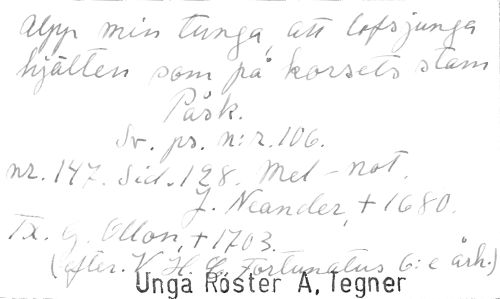 Upp min tunga, att lofsjunga
hjälten som på korsets stam
Påsk.
Sv. ps. n:r. 106.
nr. 147. Sid. 128. Mel-not.
J. Neander, + 1680.
Tx. G. Ollon, + 1703.
(efter. V. H. C. Fortunatus 6:e årh.)
Unga Röster A, Tegner